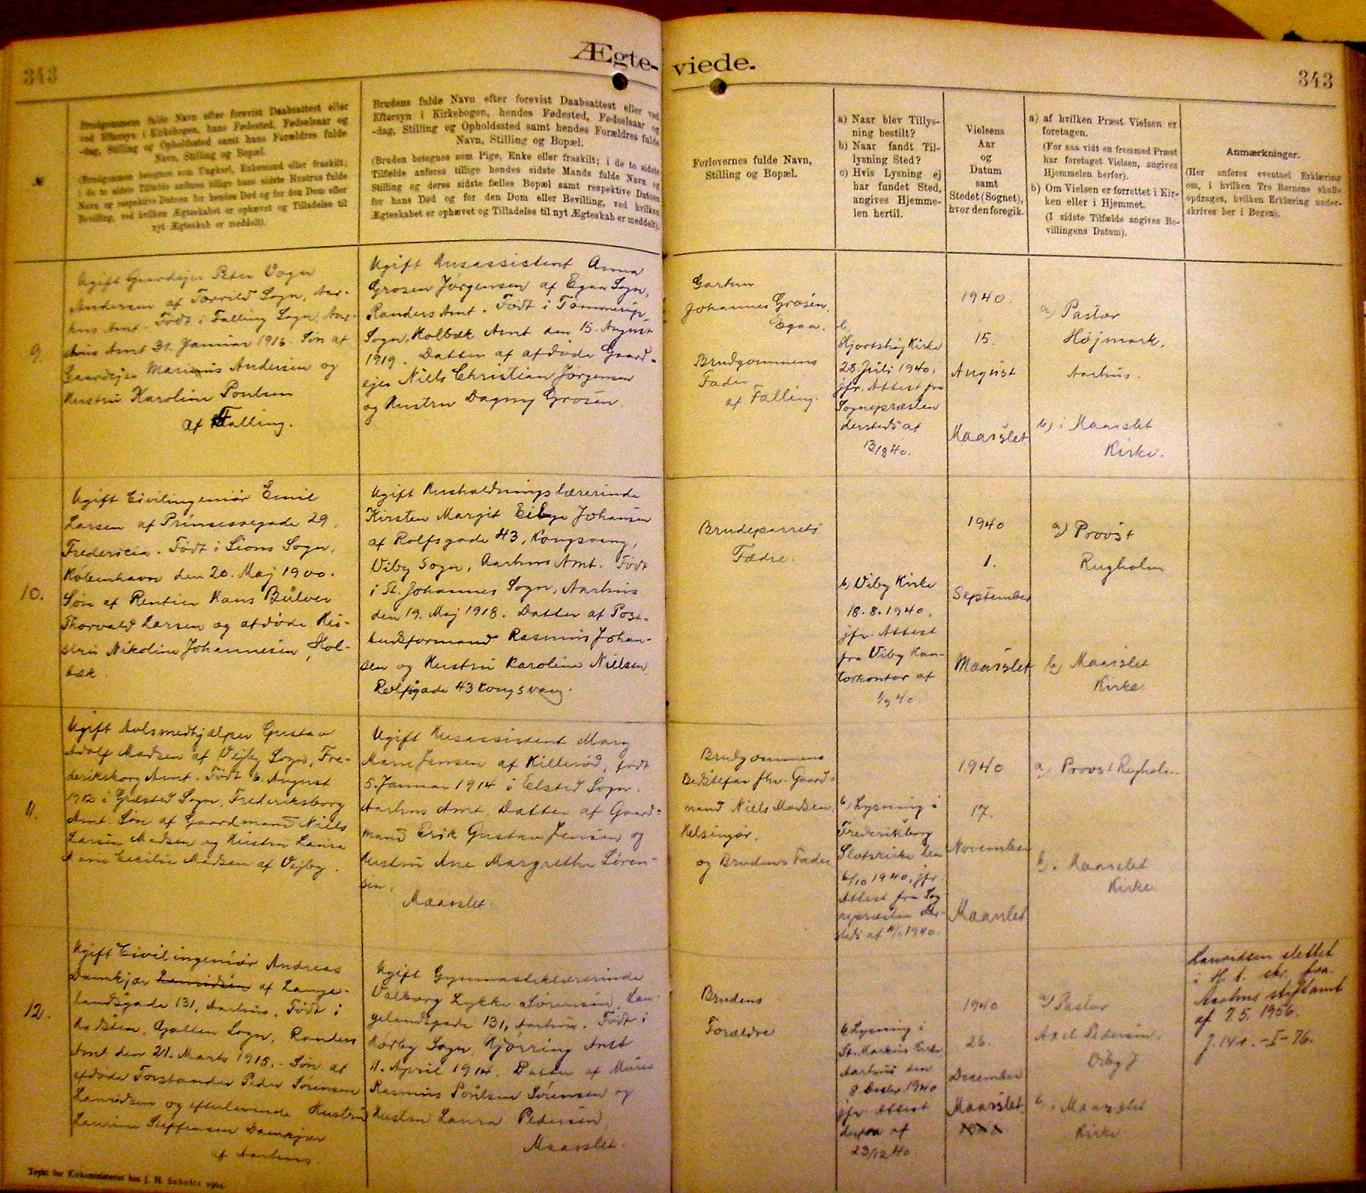 343
Ægte-
viede.
343
Brudgommens fulde Navn efter forevist Daabsattest eller
ved Eftersyn i Kirkebogen, hans Fødested, Fødselsaar og
-dag, Stilling og Opholdssted samt hans Forældres fulde
Navn, Stilling og Bopæl.
(Brudgommen betegnes som Ungkarl, Enkemand eller fraskilt;
i de to sidste Tilfælde anføres tillige hans sidste Hustrus fulde
Navn og respektive Datoen for hendes Død og for den Dom eller
Bevilling, ved hvilken Ægteskabet er ophævet og Tilladelse til
nyt Ægteskab er meddelt).
Brudens fulde Navn efter forevist Daabsattest eller ved
Eftersyn i Kirkebogen, hendes Fødested, Fødselsaar og
-dag, Stilling og Opholdssted samt hendes Forældres fulde
Navn, Stilling og Bopæl.
(Bruden betegnes som Pige, Enke eller fraskilt; i de to sidste
Tilfælde anføres tillige hendes sidste Mands fulde Navn og
Stilling og deres sidste fælles Bopæl samt respektive Datoen
for hans Død og for den Dom eller Bevilling, ved hvilken
Ægteskabet er ophævet og Tilladelse til nyt Ægteskab er meddelt).
Forlovernes fulde Navn,
Stilling og Bopæl.
a) Naar blev Tillys-
ning bestilt?
b) Naar fandt Til-
lysning Sted?
c) Hvis Lysning ej
har fundet Sted,
angives Hjemme-
len hertil.
Vielsens
Aar
og
Datum
samt
Stedet (Sognet),
hvor den foregik.
a) af hvilken Præst Vielsen er
foretagen.
(For saa vidt en fremmed Præst
har foretaget Vielsen, angives
Hjemmelen herfor).
b) Om Vielsen er forrettet i Kir-
ken eller i Hjemmet.
(I sidste Tilfælde angives Be-
villingens Datum).
Anmærkninger.
(Her anføres eventuel Erklæring
om, i hvilken Tro Børnene skulle
opdrages, hvilken Erklæring under-
skrives her i Bogen).
9.
Ugift Gaardejer Peter Vagn
Andersen af Torrild Sogn, Aar-
hus Amt. Født i Falling Sogn, Aar-
hus Amt 31. Januar 1916. Søn af
Gaardejer Marinus Andersen og
Hustru Karoline Poulsen
af Falling.
Ugift Husassistent Anna
Grosen Jørgensen af Egaa Sogn,
Randers Amt. Født i Tømmerup
Sogn, Holbæk Amt den 15. August
1919. Datter af afdøde Gaard-
ejer Niels Christian Jørgensen
og Hustru Dagny Grosen.
Gartner
Johannes Grosen,
Egaa.
Brudgommens
Fader
af Falling.
b,
Hjortshøj Kirke
28 Juli 1940,
jfr. Attest fra
Sognepræsten
dersteds af
13/8 40.
1940.
15.
August
Maarslet
a) Pastor
Højmark,
Aarhus.
b) i Maarslet
Kirke.
10.
Ugift Civilingeniør Emil
Larsen af Prinsessegade 29,
Fredericia. Født i Sions Sogn,
København den 20. Maj 1900.
Søn af Rentier Hans Bülver
Thorvald Larsen og afdøde Hu-
stru Nikoline Johannesen, Hol-
bæk
Ugift Husholdningslærerinde
Kirsten Margit Eibye Johansen
af Rolfsgade 43, Kongsvang,
Viby Sogn, Aarhus Amt. Født
i St. Johannes Sogn, Aarhus
den 19. Maj 1918. Datter af Post-
budsformand Rasmus Johan-
sen og Hustru Karoline Nielsen,
Rolfsgade 43 Kongsvang.
Brudeparrets
Fædre.
b, Viby Kirke
18.8.1940,
jfr. Attest
fra Viby Kan-
torkontor af
1/9 40.
1940
1.
September
Maarslet
a) Provst
Rugholm
b) Maarslet
Kirke
11.
Ugift Avlsmedhjælper Gustav
Adolf Madsen af Vejby Sogn, Fre-
deriksborg Amt. Født 6. August
1912 i Græsted Sogn, Frederiksborg
Amt. Søn af Gaardmand Niels
Larsen Madsen og Hustru Laura
Marie Cecilie Madsen af Vejby.
Ugift Husassistent Mary
Marie Jensen af Hillerød, født
5. Januar 1914 i Elsted Sogn,
Aarhus Amt. Datter af Gaard-
mand Erik Gustav Jensen og
Hustru Ane Margrethe Søren-
sen,
Maarslet.
Brudgommens
Bedstefar fhv. Gaard-
mand Niels Madsen,
Helsingør.
og Brudens Fader
b, Lysning i
Frederiksborg
Slotskirke den
6/10 1940, jfr.
Attest fra Sog-
nepræsten der-
steds af 11/11 1940.
1940
17.
November
Maarslet
a) Provst Rugholm
b) i Maarslet
Kirke
12.
Ugift Civilingeniør Andreas
Damkjær Lauridsen af Lange-
landsgade 131, Aarhus. Født i
Hadsten, Galten Sogn, Randers
Amt den 21. Marts 1915. Søn af
afdøde Forstander Peder Sørensen
Lauridsen og efterlevende Hustru
Laurine Steffensen Damkjær
af Aarhus.
Ugift Gymnastiklærerinde
Valborg Lykke Sørensen, Lan-
gelandsgade 131, Aarhus. Født i
Korby Sogn, Hjørring Amt
11. April 1914. Datter af Murer
Rasmus Poulsen Sørensen og
Hustru Laura Pedersen,
Maarslet.
Brudens
Forældre
b, Lysning i
St. Markus Kirke
Aarhus den
8 Decbr 1940
jfr. Attest
derfra af
23/12 40
1940
26.
December
Maarslet.
a) Pastor
Axel Pedersen,
Viby J
b, i Maarslet
Kirke
Lauridsen slettet
i H. t. skr. fra
Aarhus stiftamt
af 7.5.1956.
J. 141.-I-76.
Trykt for Kirkeministeriet hos J. H. Schultz